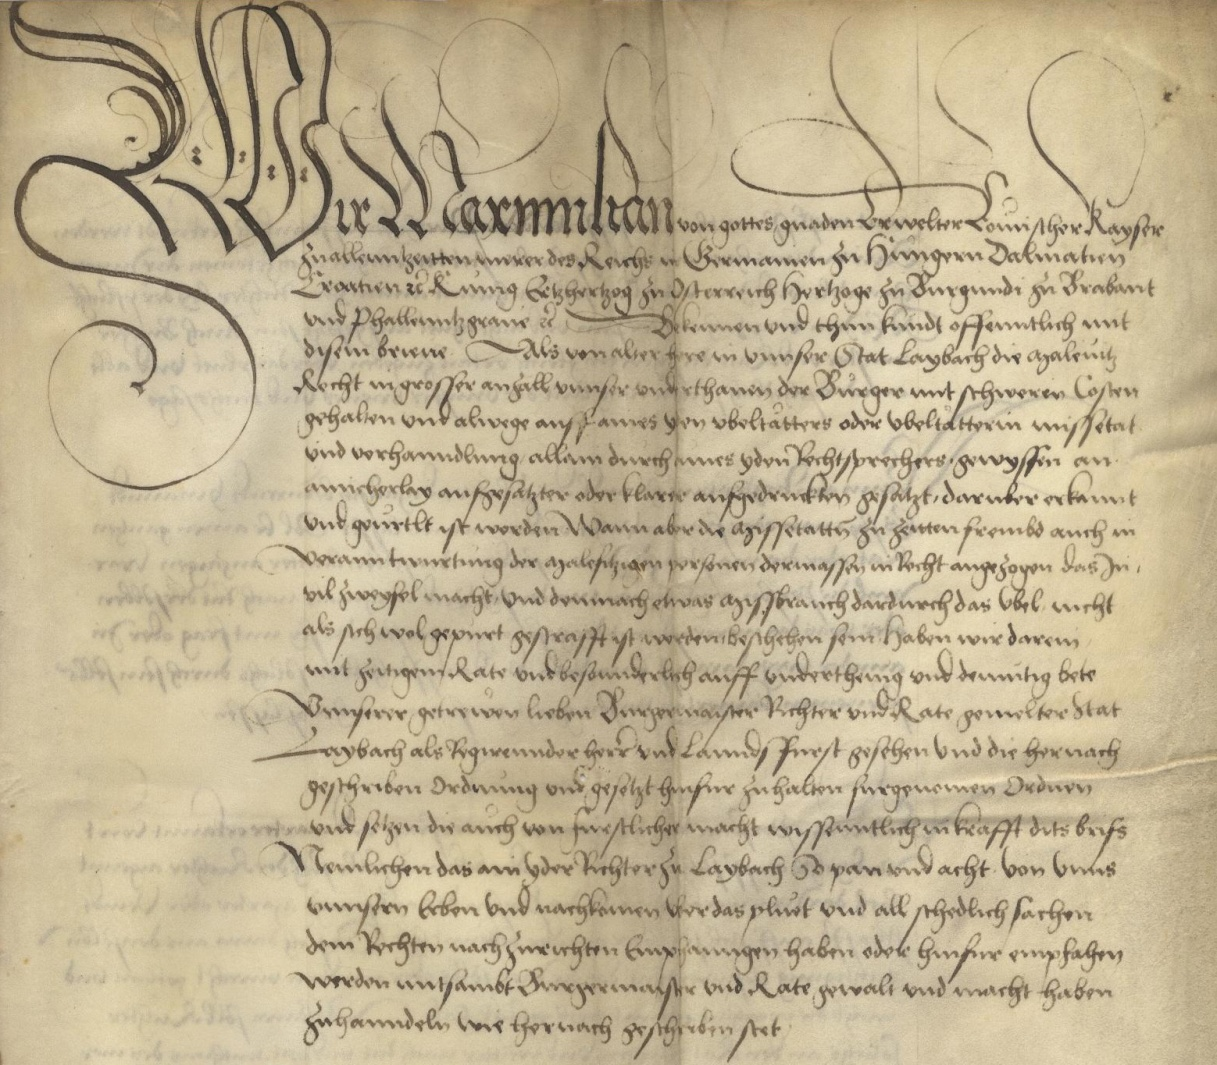 Wir Maximilian von gottes gnaden Erwelter Romischer Kayser
zu allenntzeitten merer des Reichs in Germanien zu Hungern Dalmatien
Croatien etc Kunig Ertzhertzog zu Osterreich Hertzoge zu Burgundi zu Brabant
vnd Phallenntzgraue etc Bekennen vnd thun kundt offenntlich mit
disem brieue Als von alter here in vnnser Stat Laybach die Maleuitz
Recht in grosser anzall vnnser vnderthanen der Burger mit schweren Costen
gehalten vnd alwege auff aines yen vbeltåtters oder vbeltåtterin missetat
vnd verhanndlung allain durch aines yden Rechtsprechers gewyssen an
ainicherlay aufgesatzter oder klarer aufgedruckten gesåtzt daruber erkannt
vnd geurtlt ist worden Wann aber die Missetattn zu zeitten frembd auch in
veranntwurtung der Malefitzigen personen dermassen in Recht angezogen das In
vil zweyfel macht vnd demnach etwas Missbrauch dardurch das vbel nicht
als sich wol gepurt gestrafft ist worden beschehen sein Haben wir darein
mit zeitigem Rate vnd besonnderlich auff vnderthenig vnd demutig bete
Vnnserer getrewen lieben Burgermaister Richter vnd Rate gemelter Stat
Laybach als Regirennder herr vnd Lanndsfurst gesehen vnd die hernach
geschriben Ordnung vnd gesetzt hinfur zuhalten furgenomen Ordnen
vnd setzen die auch von furstlicher macht wissenntlich in krafft dits briefs
Nemlichen das ain yder Richter zu Laybach So pan vnd acht von vnns
vnnsern Erben vnd nachkomen vber das pluet vnd all schedlich sachen
dem Rechten nach zurichten Emphanngen haben oder hinfur emphahen
werden mitsambt Burgermaister vnd Rate gewalt vnd macht haben
zuhanndeln wie hernach geschriben stet